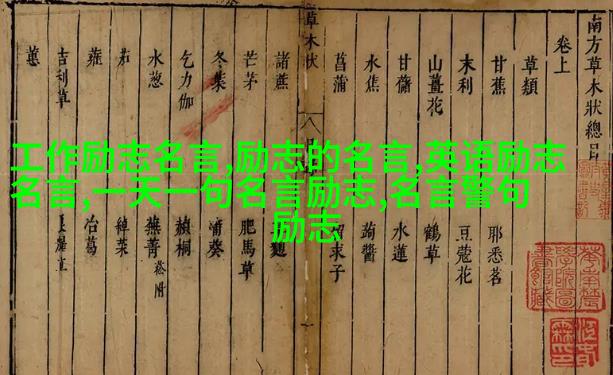 工作励志名言,励志的名言,英语励志
名言,一天一句名言励志,名言警句
励志
南方草木狀總目
卷上
草類
甘蕉 耶悉茗
末利 豆蔻花
山薑花 鶴草
甘藷 水蓮
水蕉 蒟醬
菖蒲 求子
草木狀 八
諸蔗
芒茅 肥馬草
冬葉 蒲葵
乞力伽 赬桐
水葱 蕪菁 菘附
茄 綽菜
蕹 冶葛
吉利草
蕙